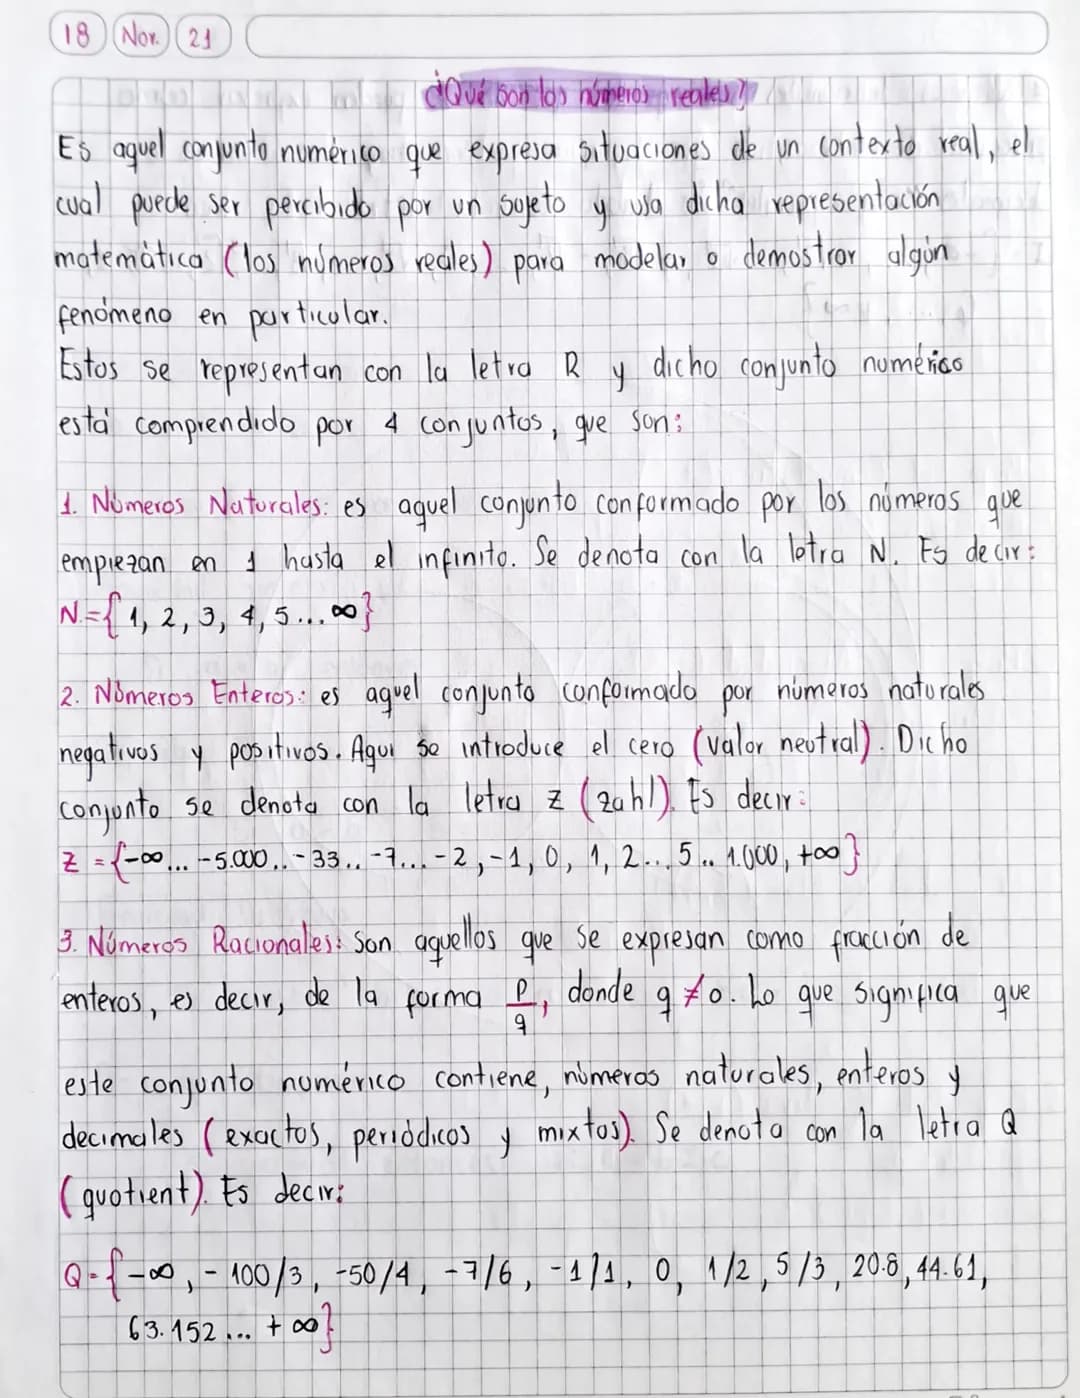 18 Nov. 21
¿Qué son los números reales?
Es aquel conjunto numérico que expresa situaciones de un contexto real, el
cual puede ser percibido por un sujeto y usa dicha representación
matemática (los números reales) para modelar o demostrar algún
fenómeno en particular.
Estos se representan con la letra R y dicho conjunto numérico
está comprendido por 4 conjuntos, que son:
1. Números Naturales: es aquel conjunto conformado por los números que
empiezan en 1 hasta el infinito. Se denota con la letra N. Es decir:
N={1, 2, 3, 4, 5... ∞}
2. Números Enteros: es aquel conjunto conformado por números naturales
negativos y positivos. Aquí se introduce el cero (valor neutral). Dicho
conjunto se denota con la letra Z (zahl). Es decir:
Z = {-∞... -5.000.. -33.. -7... -2, -1, 0, 1, 2... 5.. 1.000, +∞}
3. Números Racionales: Son aquellos que se expresan como fracción de
enteros, es decir, de la forma p/q, donde q ≠ 0. Lo que significa que
este conjunto numérico contiene, números naturales, enteros y
decimales (exactos, periódicos y mixtos). Se denota con la letra Q
(quotient). Es decir:
Q={-∞, -100/3, -50/4, -7/6, -1/1, 0, 1/2, 5/3, 20.8, 44.61,
63.152... +∞}